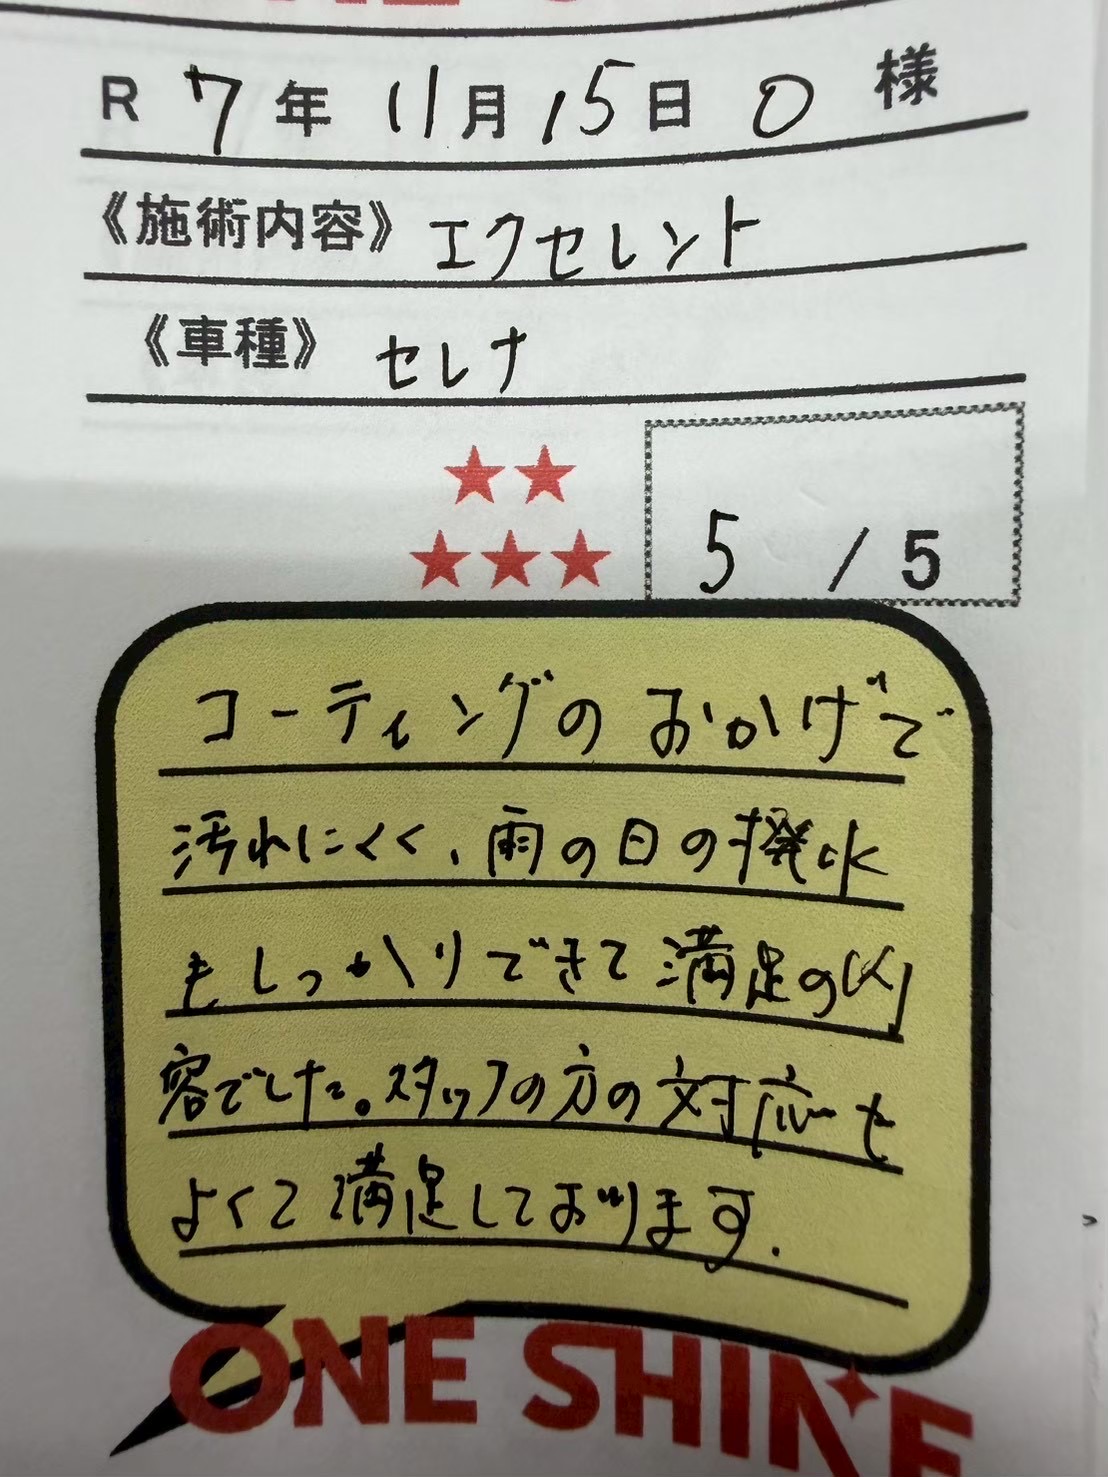 R 7年 11月 15日 O 様
《施術内容》 エクセレント
《車種》 セレナ
5 / 5
コーティングのおかげで
汚れにくく、雨の日の撥水
もしっかりできて満足の内
容でした。スタッフの方の対応も
よくて満足しております.
ONE SHINE